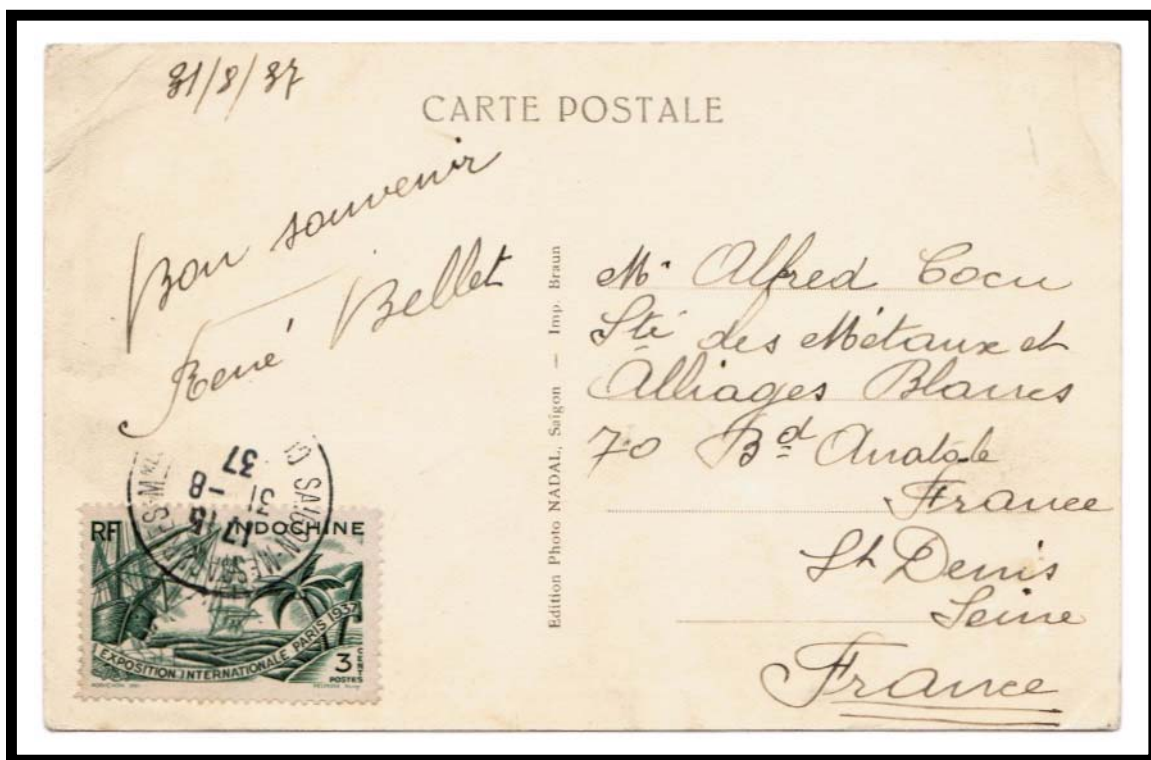 31/8/37
CARTE POSTALE
Bon souvenir
René Bellet
Edition Photo NADAL, Saigon — Imp. Braun
Mr Alfred Cocu
Sté des Métaux et
Alliages Blancs
70 Bd Anatole
France
St Denis
Seine
France
SAIGON-MESSAGERIES-M
17 15
31 -8
37
RF INDOCHINE
EXPOSITION INTERNATIONALE PARIS 1937
3 CENTS
POSTES